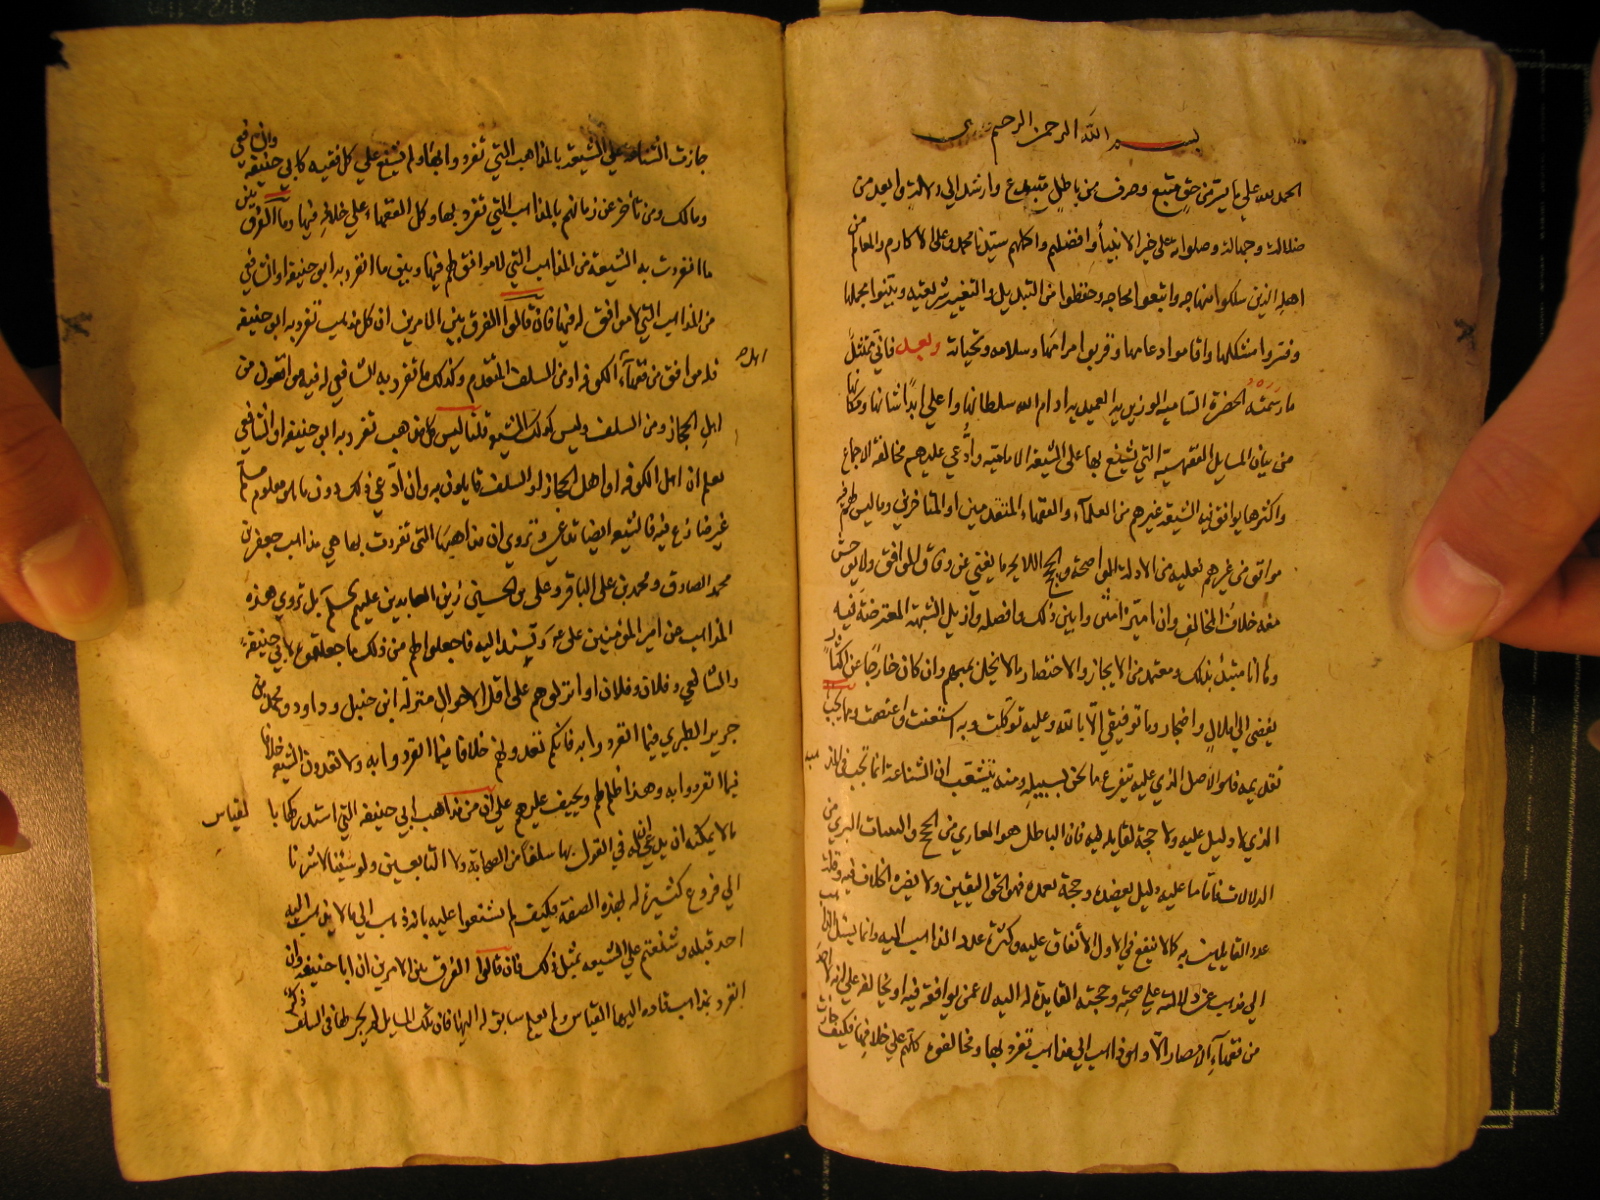 بسم الله الرحمن الرحيم
الحمد لله علي ما يسر من حق متبع وصرف من باطل مبتدع وارشد الي دلالة وابعد من
ضلالة وجهالة وصلواته علي خير الانبيأ وافضلهم واكملهم سيدنا محمد وعلي الاكارم والمعالم من
اهله الذين سلكوا منهاجه واتبعوا محاجه وحفظوا من التبديل والتغيير شريعته وبينوا مجملها
وفسروا مشكلها واقاموا دعايمها وسلامه وتحياته وبعد فاني ممتثل
ما رسمته الحضرة السامية الوزيرية العميدية ادام الله سلطانها واعلي ابدا شانها ومكانها
من بيان المسايل الفقهية التي يشنع بها علي الشيعة الامامية وادعي عليهم مخالفة الاجماع
واكثرها يوافق فيه الشيعة غيرهم من العلمآء والفقهاء المتقدمين او المتاخرين وما ليس لهم فيه
موافق من غيرهم فعليه من الادلة الواضحة والحجج اللايحة ما يغني عن وفاق الموافق ولا يوحش
معه خلاف المخالف وان ابين ذلك وافصله وازيل الشبهة المعترضة فيه
وها انا مبتدئ بذلك ومعتمد من الايجاز والاختصار ما لا يخل بمبهم وان كان خارجا عن اكثار
يفضي الي املال واضجار وما توفيقي الا بالله وعليه توكلت وبه استعنت واعتصمت ومما يجب
تقديمه فهو الاصل الذي عليه يتفرع ما نحن بسبيله ومنه يتشعب ان الشناعة انما تجب في المذهب
الذي لا دليل عليه ولا حجة لقايله فيه فان الباطل هو العاري من الحجج والبينات البري من
الدلالات فاما ما عليه دليل يعضده وحجة تعمده فهو الحق اليقين ولا يضره الخلاف فيه وقلة
عدد القايلين به كما لا ينفع في الاول الاتفاق عليه وكثرة عدد الذاهب اليه وانما يسئل الذاهب
الي مذهب عن دلالته علي صحته وحجته القايدة له اليه لا عمن يوافقه فيه او يخالفه علي انه لا احد
من فقهآء الامصار الا وهو ذاهب الي مذاهب تفرد بها ومخالفوه كلهم علي خلافه فيها فكيف جازت
جازت الشناعة علي الشيعة بالمذاهب التي تفردوا بها ولم يشنع علي كل فقيه كابي حنيفة والشافعي
ومالك ومن تأخر عن زمانهم بالمذاهب التي تفرد بها وكل الفقهاء علي خلافه فيها وما الفرق بين
ما انفردت به الشيعة من المذاهب التي لا موافق لهم فيها وبين ما انفرد به ابو حنيفة او الشافعي
من المذاهب التي لا موافق له فيها فان قالوا الفرق بين الامرين ان كل مذهب تفرد به ابو حنيفة
فله موافق من فقهآء الكوفه او من السلف المتقدم وكذلك ما تفرد به الشافعي له فيه موافقون من اهل
اهل الحجاز ومن السلف وليس كذلك الشيعة قلنا ليس كل مذهب تفرد به ابو حنيفة او الشافعي
يعلم ان اهل الكوفه او اهل الحجاز او السلف قايلون به وان ادعي ذلك دون ما هو معلوم مسلم
غير منازع فيه فالشيعة ايضا تدعي وتروي ان مذاهبها التي تفردت بها هي مذاهب جعفر بن
محمد الصادق ومحمد بن علي الباقر وعلي بن الحسين زين العابدين عليهم السلام بل تروي هذه
المذاهب عن امير المؤمنين علي ع وتسندها اليه فاجعلوا لهم من ذلك ما جعلتموه لابي حنيفة
والشافعي وفلان وفلان او انزلوهم علي اقل الاحوال منزلة ابن حنبل وداود ومحمد بن
جرير الطبري فيما انفردوا به فانكم تعدونهم خلافا فيما انفردوا به ولا تعدون الشيعة خلافا
فيما انفردوا به وهذا ظلم لهم وحيف عليهم علي ان من مذاهب ابي حنيفة التي استدركها با لقياس
ما لا يمكنه ان يدعي ان له في القول بها سلفا من الصحابة ولا التابعين ولو شئنا لاشرنا
الي فروع كثيرة له لهذه الصفة فكيف لم تشنعوا عليه بانه ذهب الي ما لا يذهب اليه
احد قبله وشنعتم علي الشيعة بمثل ذلك فان قالوا الفرق بين الامرين ان ابا حنيفة وان
انفرد بمذاهب قاده اليها القياس ولم يعلم سابق له اليها فان تلك المسايل لم يجر لها في السلف ذكر